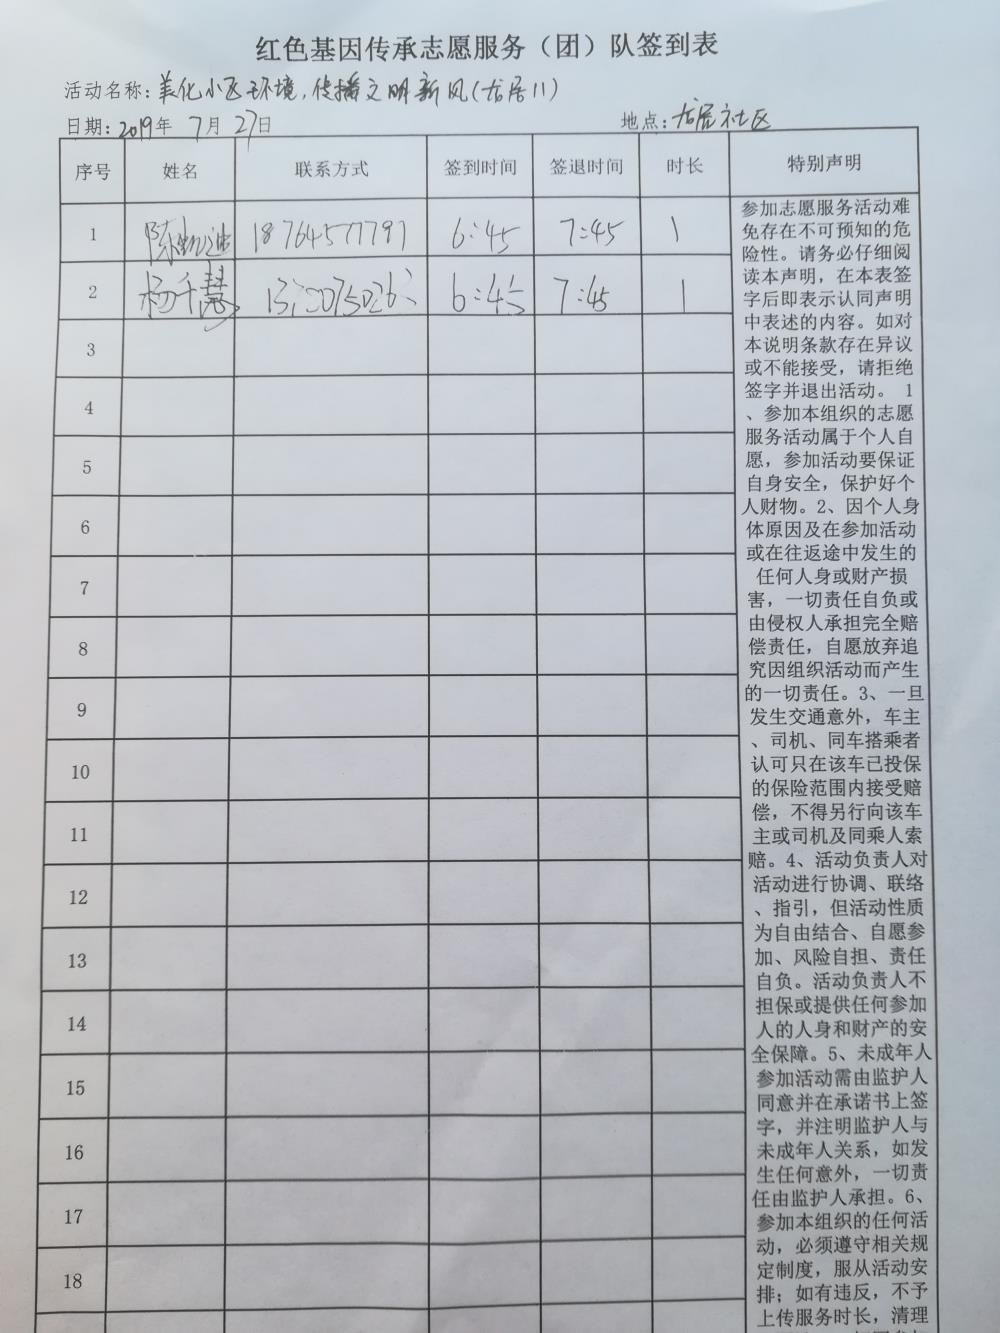 红色基因传承志愿服务（团）队签到表
活动名称：美化小区环境，传播文明新风（龙居11）
日期：2019年 7月 27日 地点：龙居社区
序号 姓名 联系方式 签到时间 签退时间 时长 特别声明
1 陈凯迪 18764577791 6:45 7:45 1
2 杨千慧 6:45 7:45 1
3
4
5
6
7
8
9
10
11
12
13
14
15
16
17
18
参加志愿服务活动难
免存在不可预知的危
险性。请务必仔细阅
读本声明，在本表签
字后即表示认同声明
中表述的内容。如对
本说明条款存在异议
或不能接受，请拒绝
签字并退出活动。 1
、参加本组织的志愿
服务活动属于个人自
愿，参加活动要保证
自身安全，保护好个
人财物。2、因个人身
体原因及在参加活动
或在往返途中发生的
任何人身或财产损
害，一切责任自负或
由侵权人承担完全赔
偿责任，自愿放弃追
究因组织活动而产生
的一切责任。3、一旦
发生交通意外，车主
、司机、同车搭乘者
认可只在该车已投保
的保险范围内接受赔
偿，不得另行向该车
主或司机及同乘人索
赔。4、活动负责人对
活动进行协调、联络
、指引，但活动性质
为自由结合、自愿参
加、风险自担、责任
自负。活动负责人不
担保或提供任何参加
人的人身和财产的安
全保障。5、未成年人
参加活动需由监护人
同意并在承诺书上签
字，并注明监护人与
未成年人关系，如发
生任何意外，一切责
任由监护人承担。6、
参加本组织的任何活
动，必须遵守相关规
定制度，服从活动安
排；如有违反，不予
上传服务时长，清理